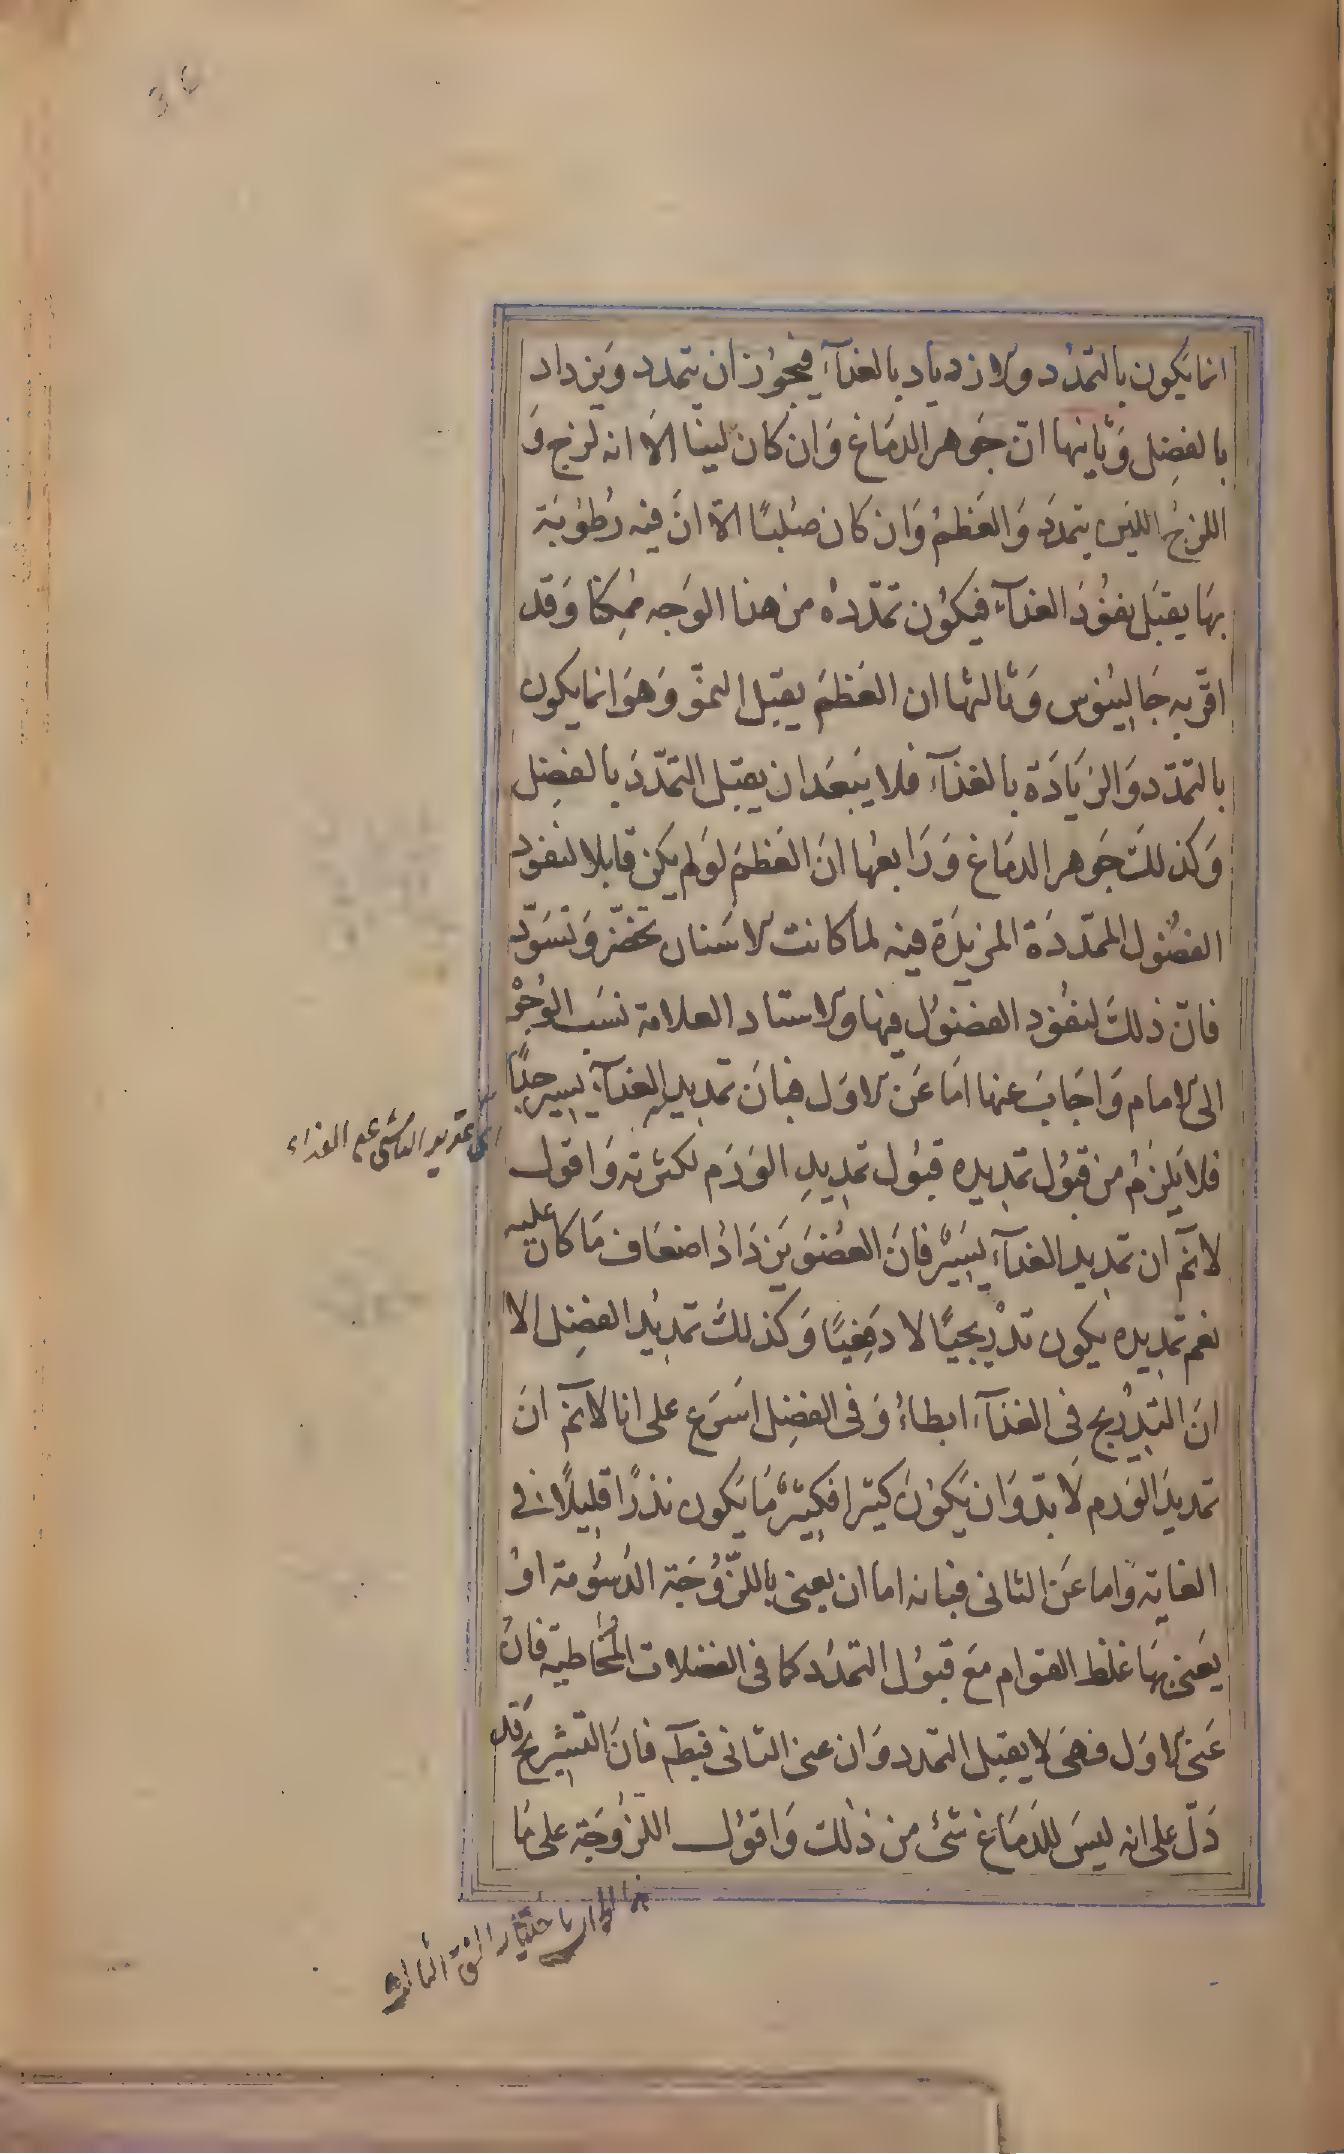 انما يَكون بالتمدُد والازدياد بالغذآءِ فيجوُز ان يتمدد وَيَزداد
بالفضِل وَثانيها انّ جَوهر الدمَاغ وَان كان لينًا الّا انه لزج وَ
اللزجُ اللّين يتمدَد وَالعَظمُ وَان كان صُلبًا الّا انَ فيه رُطوُبَة
بهَا يقبَل نفوُذَ الغذآء فيكوُن تمدّدهُ من هذا الوَجه ممُكِنًا وَقد
اقرّ به جَالينُوس وَثالثها ان العَظمَ يقبَل النموّ وَهوَ انما يكون
بالتمدّد وَالزيَادَة بالغذآء فلا يَبعَد ان يقبَل التمدّدَ بالفضِل
وَكذلكَ جَوهر الدمَاغ وَرَابعهُا انَ العَظمَ لوَلم يكن قابلا لنفوذ
الفضُول الممَدّدَة المزيدَة فيه لماَ كانت الاسَنان تخضرّ وَتسَوَدّ
فانّ ذلكَ لنفوُذ الفضوُل فيها والاستاد العلامة نسَب الوُجوْ
الى الامام وَاجَابَ عنها امَا عَن الاوَل فبانَ تمديد الغذآءِ يسير جدًّا
فلا يَلزمُ من قبوُل تمديده قبوُل تمديدِ الوَرَم لكثرته وَاقول
لانَم ان تمديد الغذآءِ يسَيرٌ فانَ العضُوَ يَزدَادُ اضعَاف مَا كانَ عليه
نعم تمديده يكون تدْريجيًا لا دفعيًا وَكذلكَ تمديدُ الفضِل الا
انَ التدريج فى الغذآء ابطاءُ وَفى الفضِل اسَرَع على انا لانَم انَ
تمديدَ الوَرم لَا بدّ وَان يَكوُن كثيرا فكثيرٌ مَا يَكون نذرًا قليلًا فى
الغاية وَاما عَن الثانى فبانه اما ان يعنى باللزُوُجَة الدسُومة اوُ
يعَنى بهَا غلظ القوام مَع قبوُل التمدُد كما فى الفضلات المُخاطية فانُ
عَنىَ الاوَل فهىَ لا يقبَل التمدد وَان عنى الثانى فبطَم فانَ التشريحَ قد
دَلّ على انه ليسَ للدمَاغ شئ من ذلك وَاقوُل اللزوُجَة على مَا